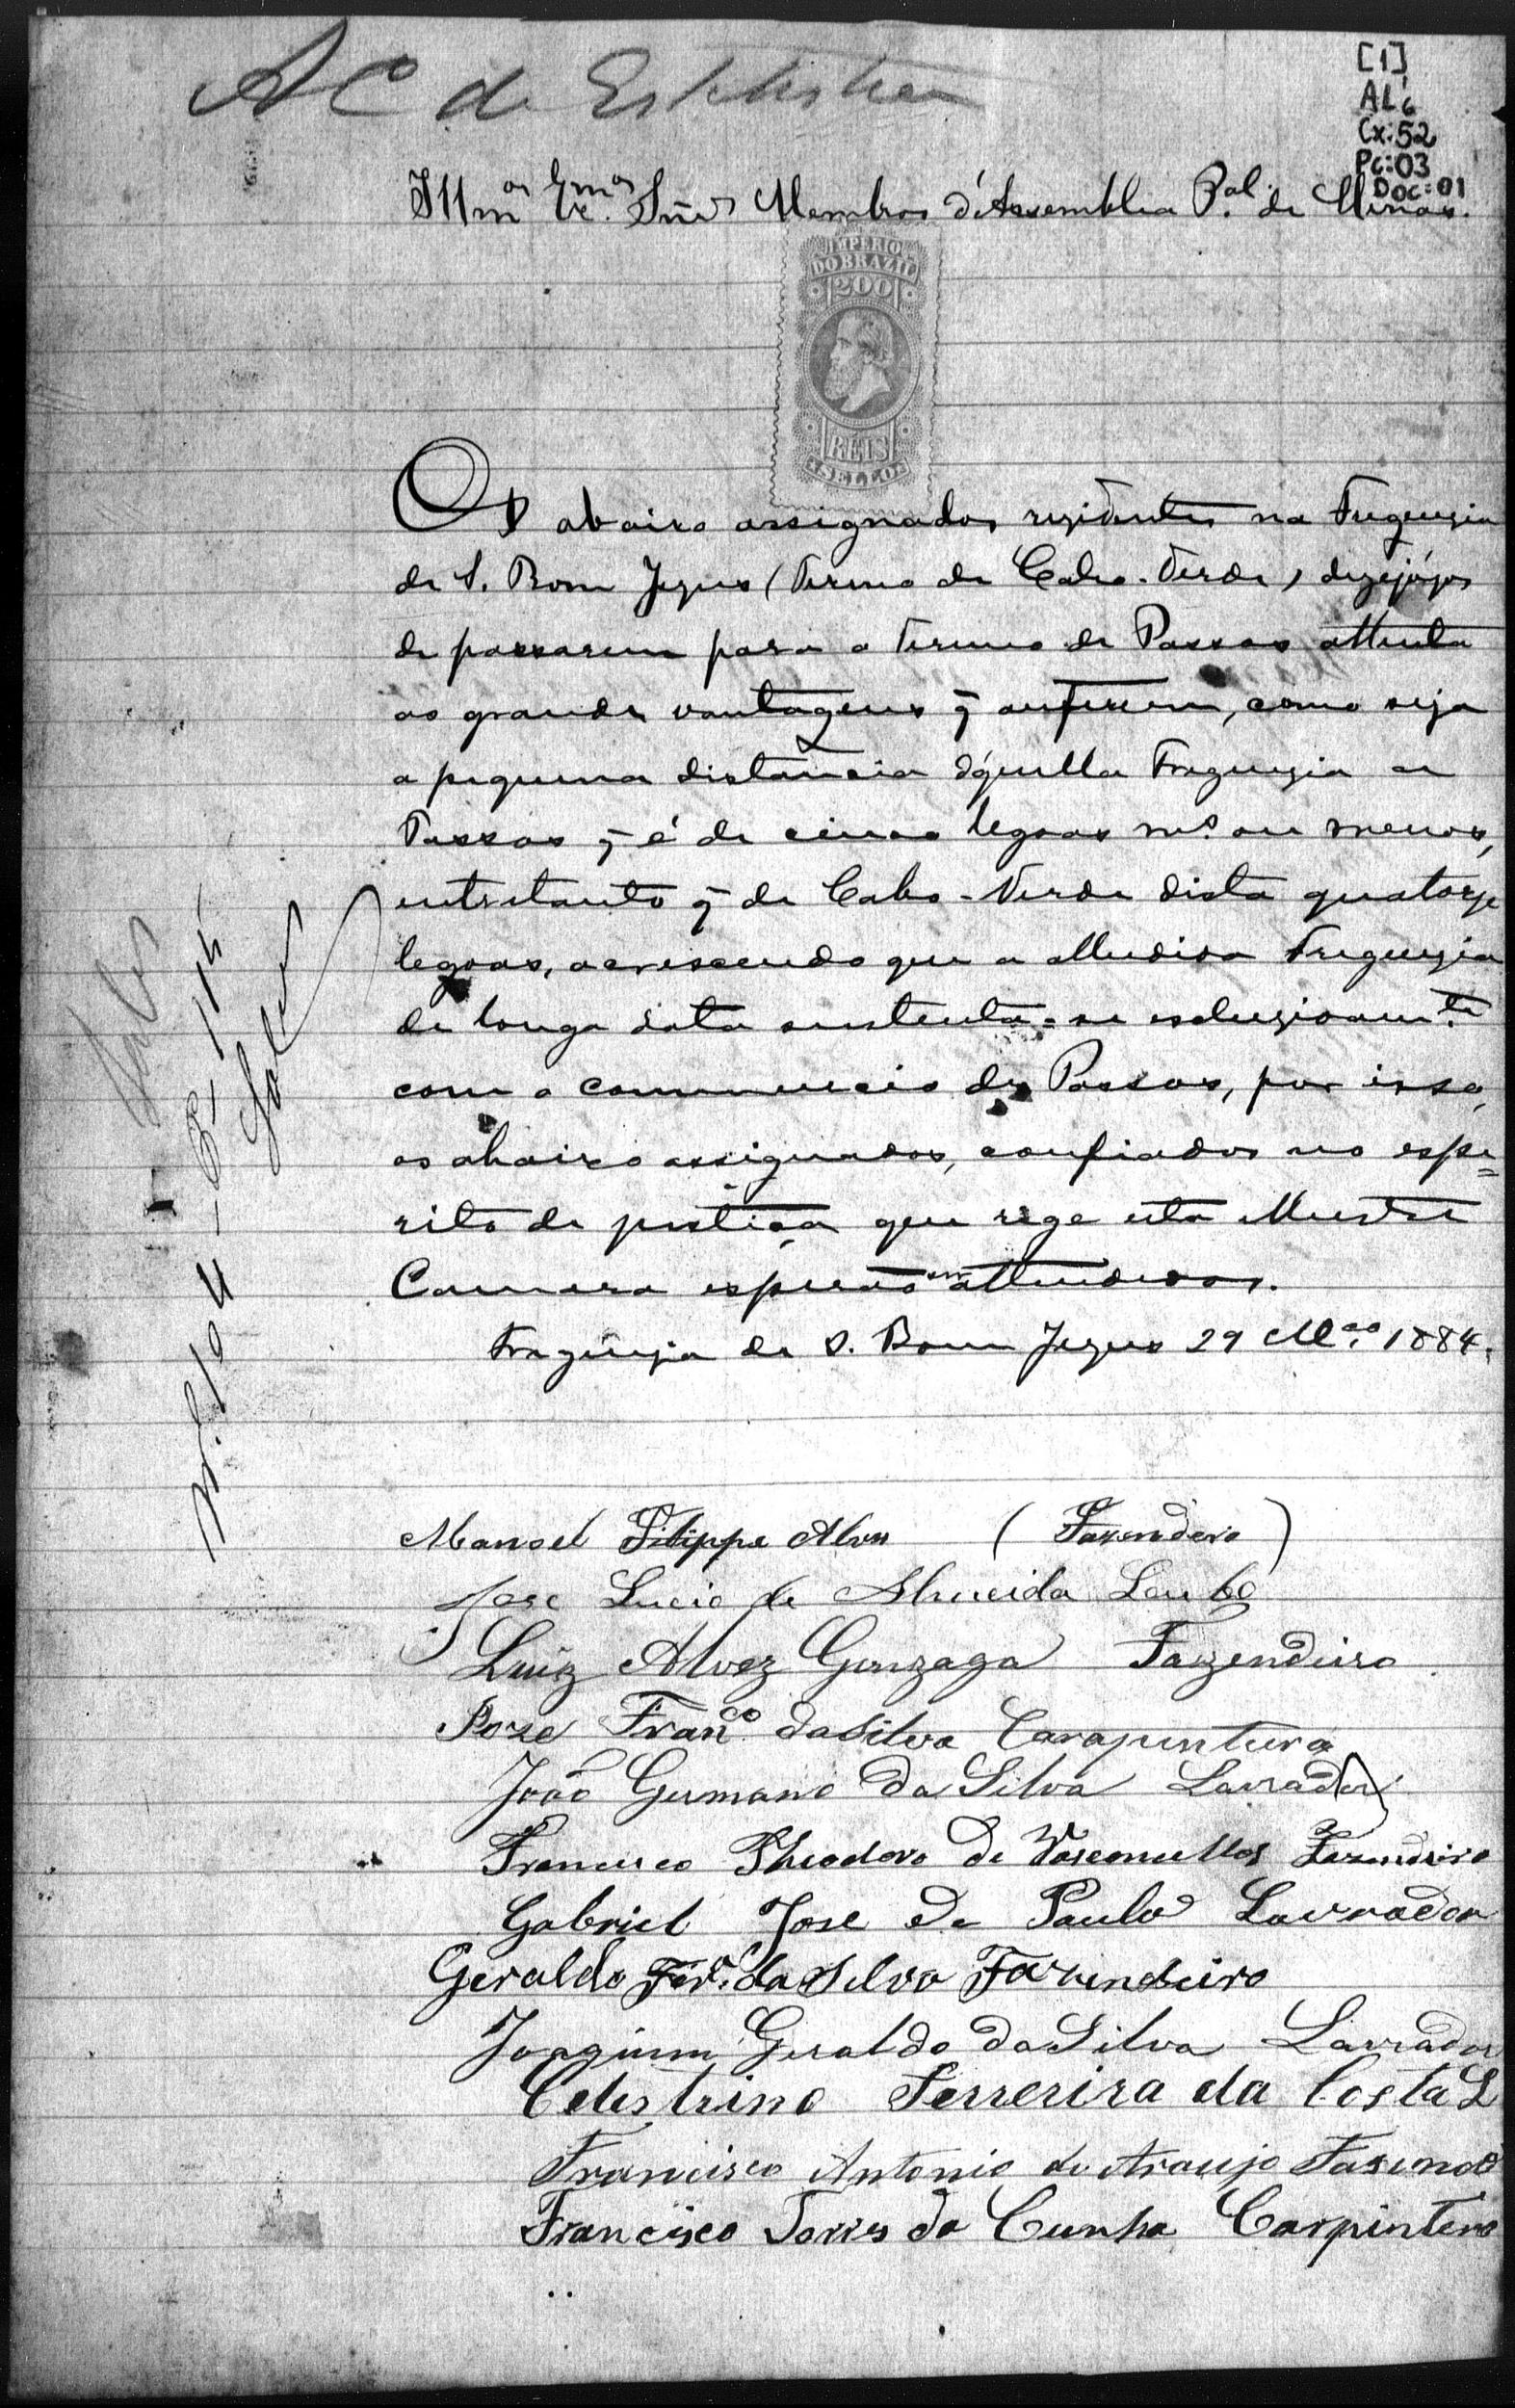 A C de Estatistica
[1]
AL6
Cx:52
Pc:03
Doc:01
Ill.mos Ex.mos Snr.es Membros d'Assemblea P.al de Minas.
IMPERIO
DO BRAZIL
200
RÉIS
SELLO
Os abaixo assignados rezidentes na Freguezia
de S. Bom Jezus (Termo de Cabo-Verde) dezejózos
de passarem para o termo de Passos attenta
as grandes vantagens q̃ auferem, como seja
a pequena distancia d'aquella Freguezia a
Passos q̃ é de cinco legoas m.s ou menos,
entretanto q̃ de Cabo-Verde dista quatorze
legoas, acrescendo que a alludida Freguezia
de longa data sustenta-se escluzivam.te
com o commercio de Passos, por isso,
os abaixo assignados, confiados no espi=
rito de justiça que rege esta Illustre
Camara esperão ser attendidos.
Freguezia de S. Bom Jezus 29 M.ço 1884.
Manoel Filippe Alves (Fazendero)
Jose Lucio de Almeida
Luiz Alvez Gonzaga Fazendeiro
Joze Fran.co da Silva Carapinteiro
João Germano da Silva Lavrador
Francisco Theodoro de Vasconcellos Fazendeiro
Gabriel Jose de Paula Lavrador
Geraldo Fer.ra da Silva Fazendeiro
Joaquim Geraldo da Silva Lavrador
Celestrino Ferrerira da Costa L
Francisco Antonio de Araujo Fasend
Francisco Torres da Cunha Carpintero
Salles